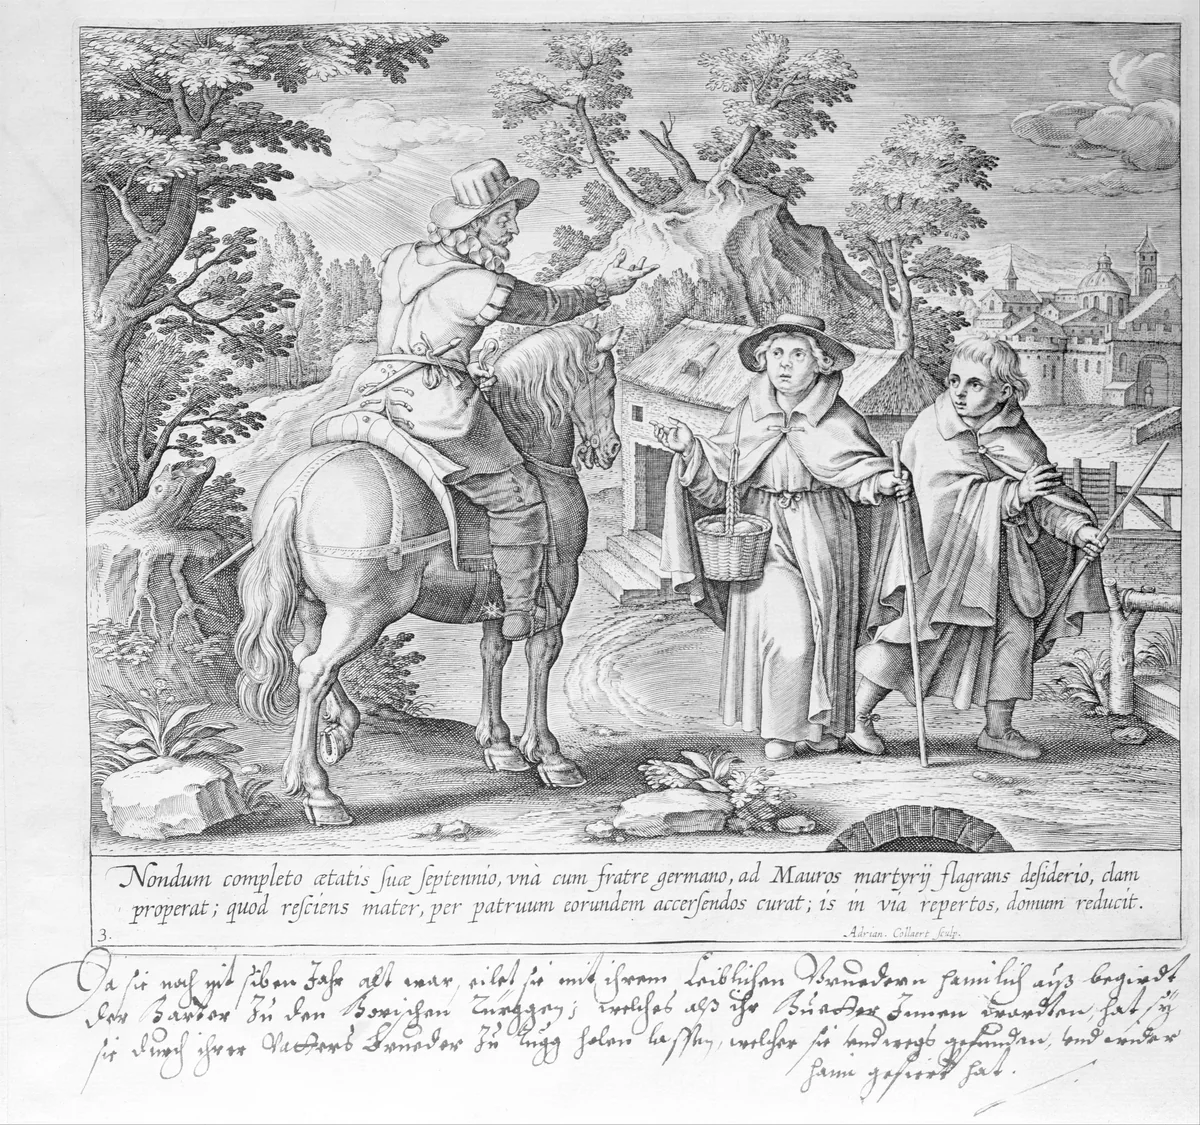 Nondum completo ætatis ſuæ ſeptennio, vnà cum fratre germano, ad Mauros martyrij flagrans deſiderio, clam
properat; quod reſciens mater, per patruum eorundem accerſendos curat; is in via repertos, domum reducit.
3.
Adrian. Collaert ſculp.
Da sie noch nit siben Jahr alt war, eilet sie mit ihrem Leiblichen Bruedern haimlich auß begirdt
der Marter Zu den Morischen Türggen; welches alß ihr Muetter Innen worden, hat sÿ
sie durch ihrer Vatters Brueder Zu Rugg holen lassen, welcher sie vndwegs gefunden, vnd wider
haim gefiert hat.